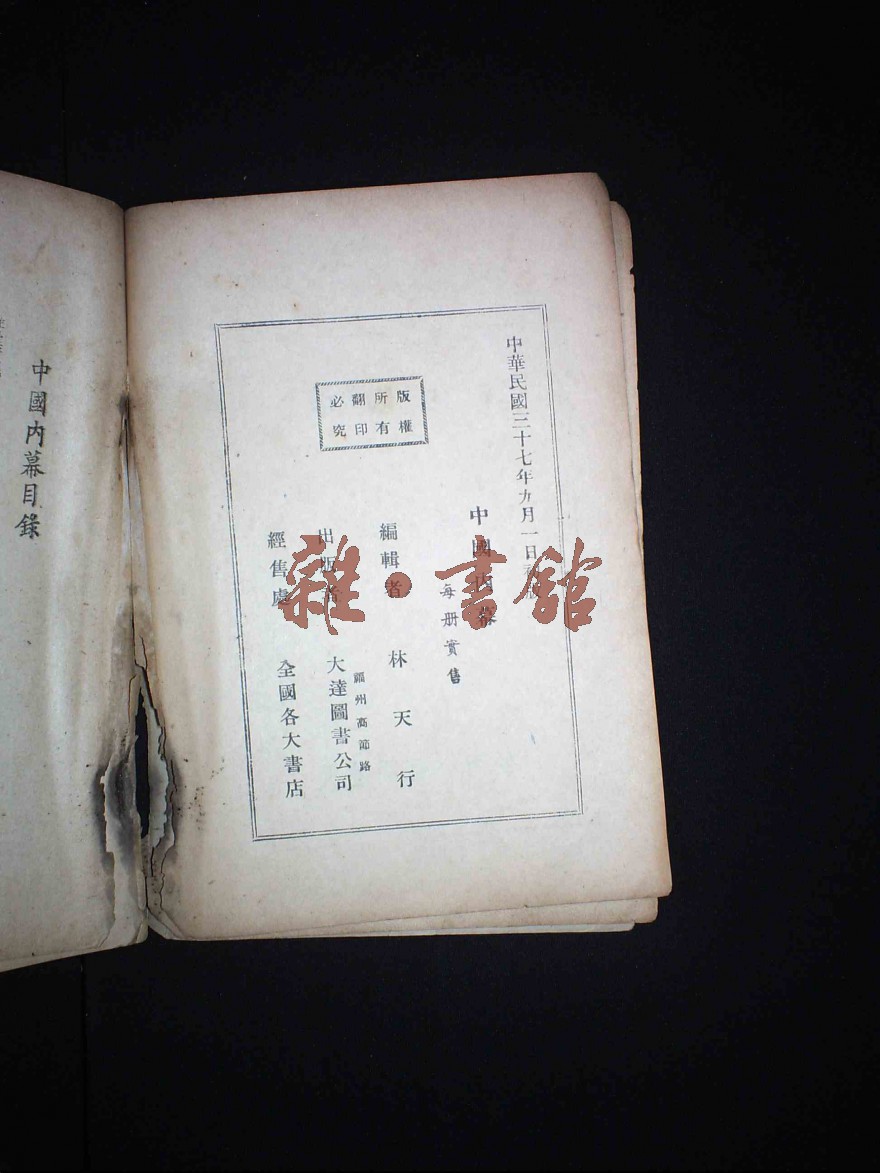 中華民國三十七年九月一日初版
中國內幕
每册實售
編輯者 林天行
福州高節路
出版者 大達圖書公司
經售處 全國各大書店
版權所有翻印必究
中國內幕目錄
雜·書館